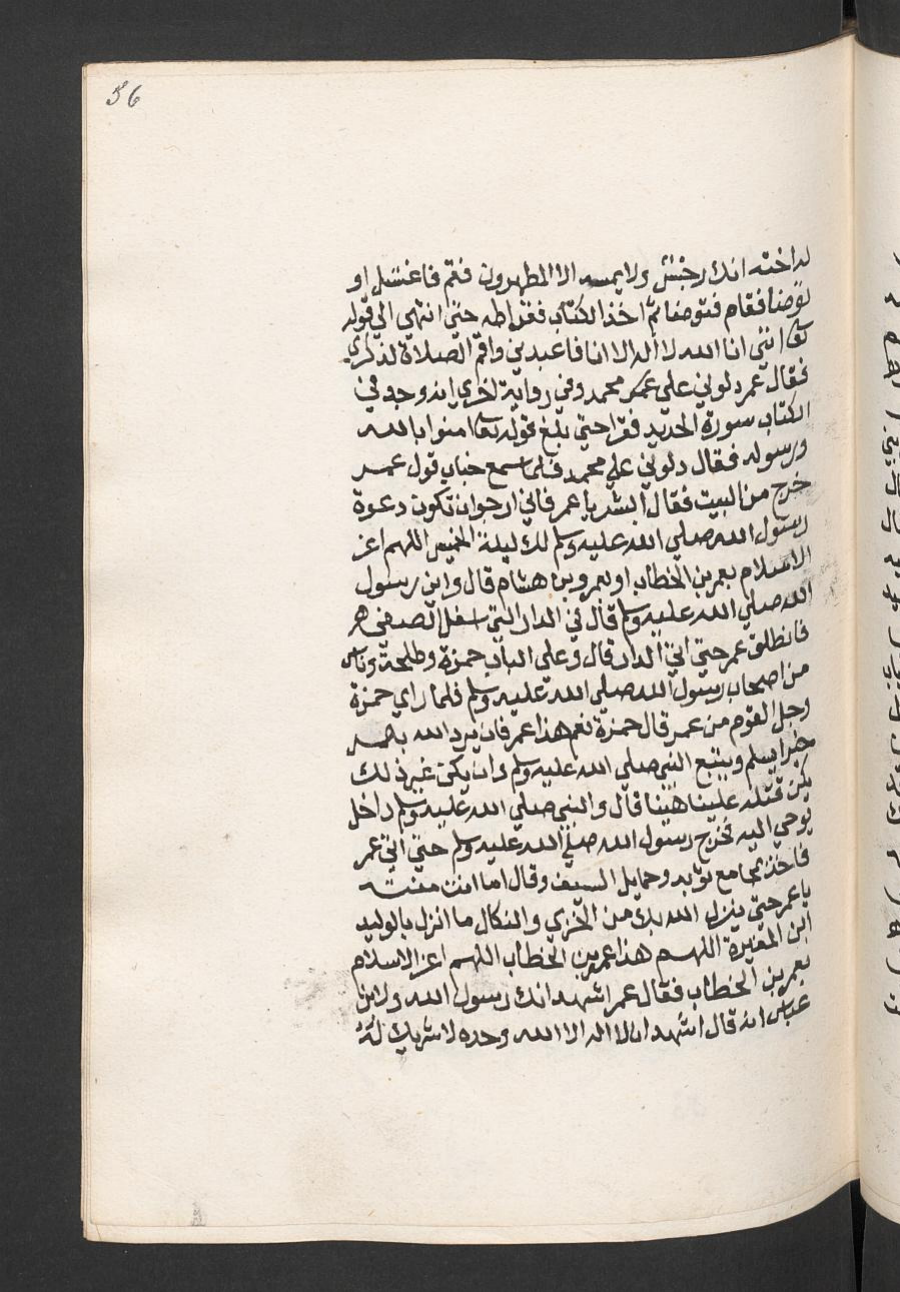 56
له اخته انك رجنس ولا يمسه الا المطهرون فقم فاغتسل او
توضا فقام فتوضا ثم اخذ الكتاب فقرا طه حتي انتهي الي قوله
تعا انني انا الله لا اله الا انا فاعبدني واقم الصلاة لذكري
فقال عمر دلوني علي محمد وفي رواية اخري انه وجد في
الكتاب سورة الحديد فقرا حتي بلغ قوله تعا امنوا بالله
ورسوله فقال دلوني علي محمد فلما سمع خباب قول عمر
خرج من البيت فقال ابشر يا عمر فاني ارجوا ان تكون دعوة
رسول الله صلي الله عليه وسلم لك ليلة الخميس اللهم اعز
الاسلام بعمر بن الخطاب او بعمرو بن هشام قال واين رسول
الله صلي الله عليه وسلم قال في الدار التي اسفل الصفي
فانطلق عمر حتي اتي الدار قال وعلي الباب حمزة وطلحة وناس
من اصحاب رسول الله صلي الله عليه وسلم فلما راي حمزة
وجل القوم من عمر قال حمزة نعم هذا عمر فان يرد الله بعمر
خيرا يسلم ويتبع النبي صلي الله عليه وسلم وان يكن غير ذلك
يكن قتله علينا هينا قال والنبي صلي الله عليه وسلم داخل
يوحي اليه فخرج رسول الله صلي الله عليه وسلم حتي اتي عمر
فاخذ بمجامع ثوبه وحمايل السيف وقال اما انت منته
يا عمر حتي ينزل الله بك من الخزي والنكال ما انزل بالوليد
ابن المغيرة اللهم هذا عمر بن الخطاب اللهم اعز الاسلام
بعمر بن الخطاب فقال عمر اشهد انك رسول الله ولابن
عباس انه قال اشهد ان لا اله الا الله وحده لا شريك له